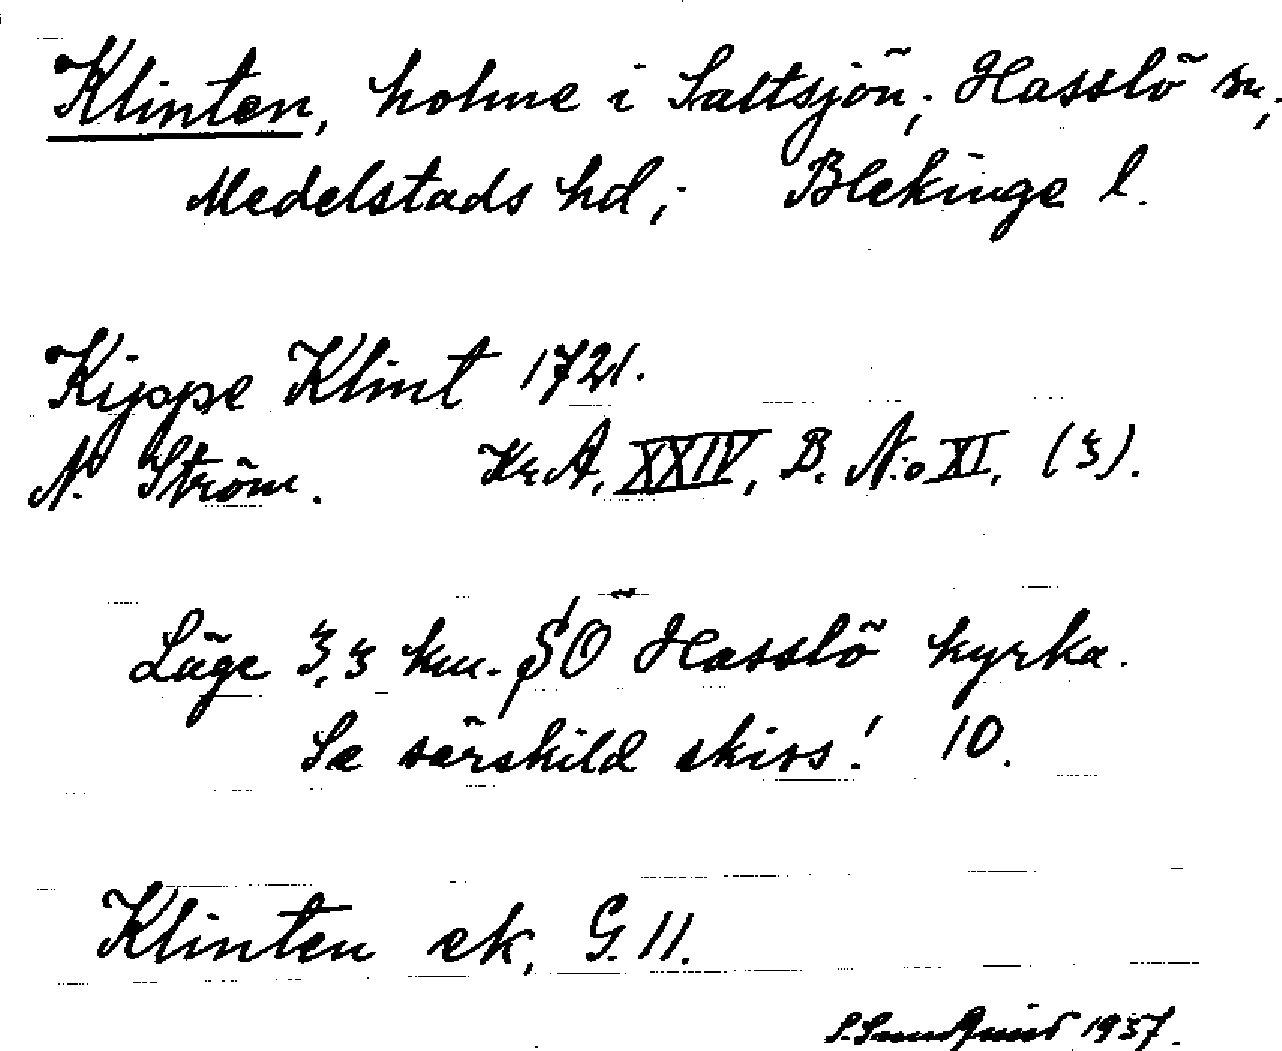 Klinten, holme i Saltsjön; Hasslö sn;
Medelstads hd; Blekinge l.
Kippe Klint 1721.
N. Ström. Kr.A, XXIV, B. No XI, (3).
Läge 3,3 km. SO Hasslö kyrka.
Se särskild skiss! 10.
Klinten ek, G.11.
S. Sundquist 1937.